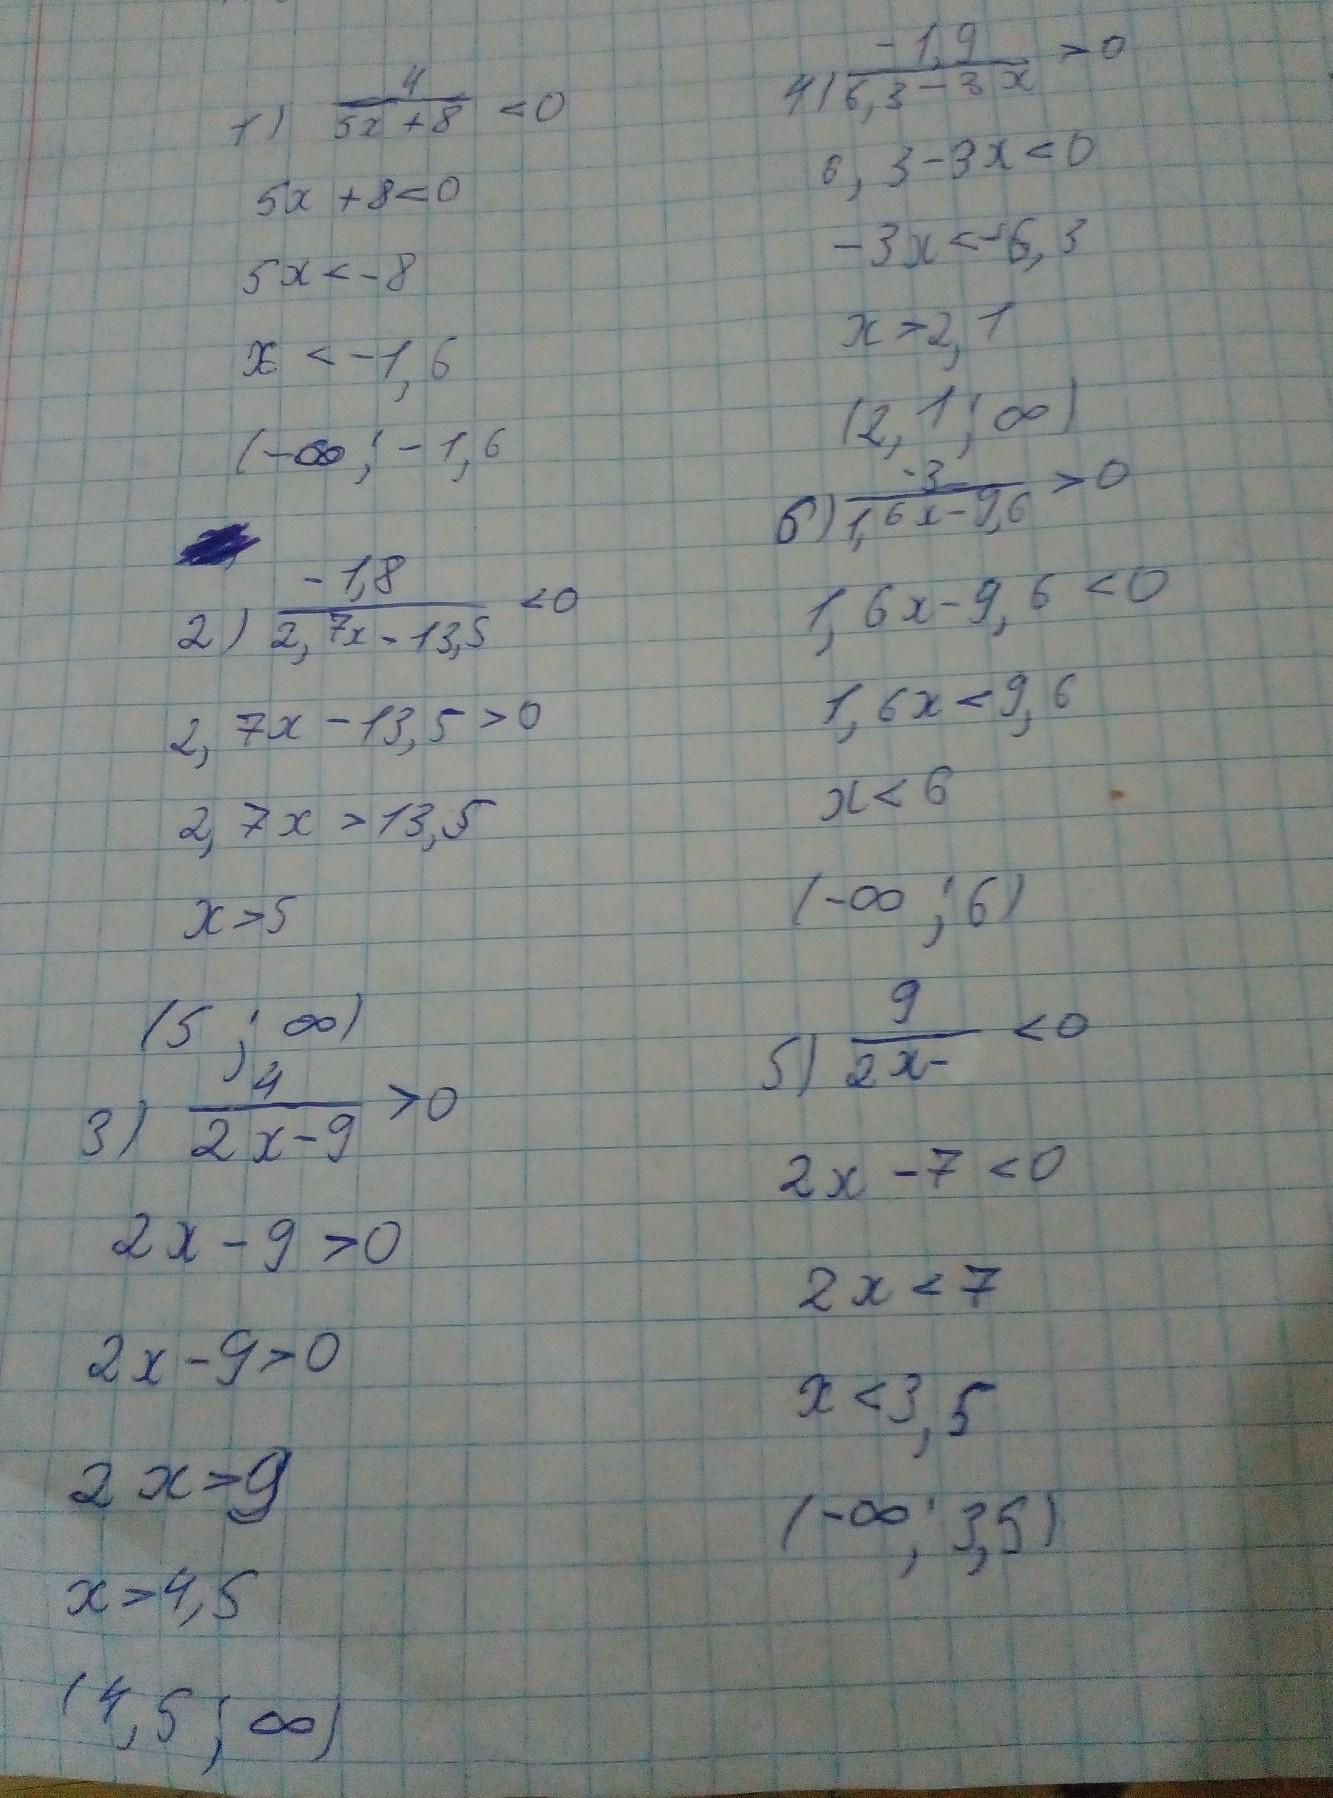 1) 4/(5x+8) <0
5x+8<0
5x<-8
x<-1,6
(-∞;-1,6
2) -1,8/(2,7x-13,5) <0
2,7x-13,5>0
2,7x>13,5
x>5
(5;∞)
3) 4/(2x-9) >0
2x-9>0
2x-9>0
2x>9
x>4,5
(4,5;∞)
4) -1,9/(6,3-3x) >0
6,3-3x<0
-3x<-6,3
x>2,1
(2,1;∞)
6) -3/(1,6x-9,6) >0
1,6x-9,6<0
1,6x<9,6
x<6
(-∞;6)
5) 9/(2x-) <0
2x-7<0
2x<7
x<3,5
(-∞;3,5)